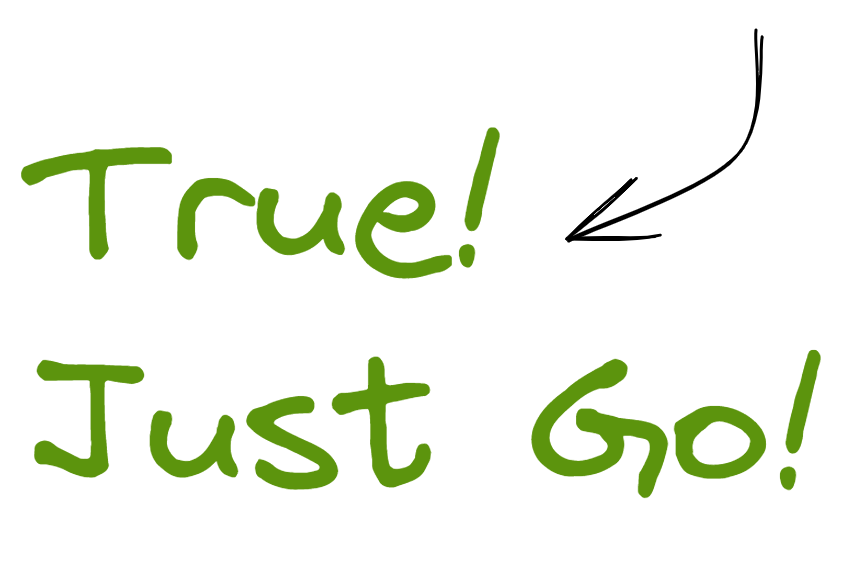 True!
Just Go!